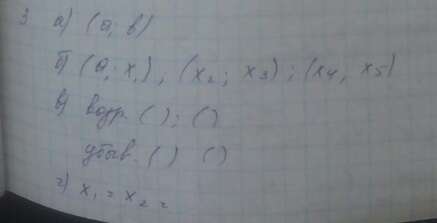 3 а) (а; в)
б) (а; x₁), (x₂; x₃); (x₄, x₅)
в) возр. ( ); ( )
убыв. ( ) ( )
г) x₁ = x₂ =